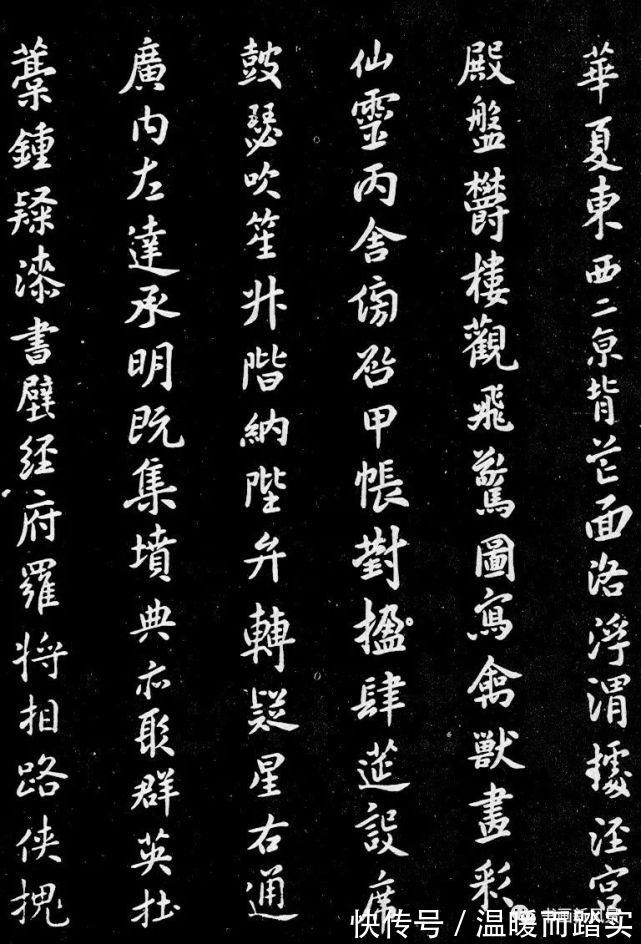 華夏東西二亰背芒面洛浮渭據涇宮
殿盤欝樓觀飛驚圖寫禽獸畫彩
仙靈丙舍傍启甲帳對楹肆莚設席
鼓瑟吹笙升階納陛弁轉疑星右通
廣内左達承明既集墳典亦聚群英杜
藁鍾隸漆書壁經府羅將相路俠槐
快传号 / 温暖而踏实